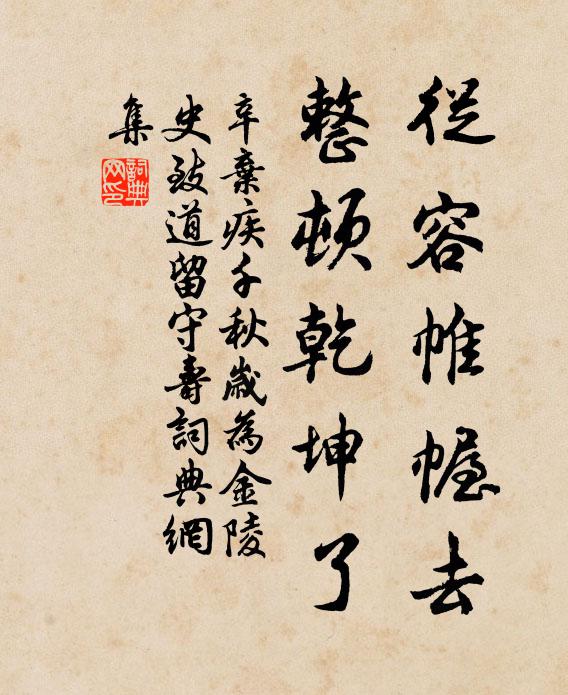 從容帷幄去
整頓乾坤了
辛棄疾千秋歲為金陵
史致道留守壽詞典網
集
詞典
网印